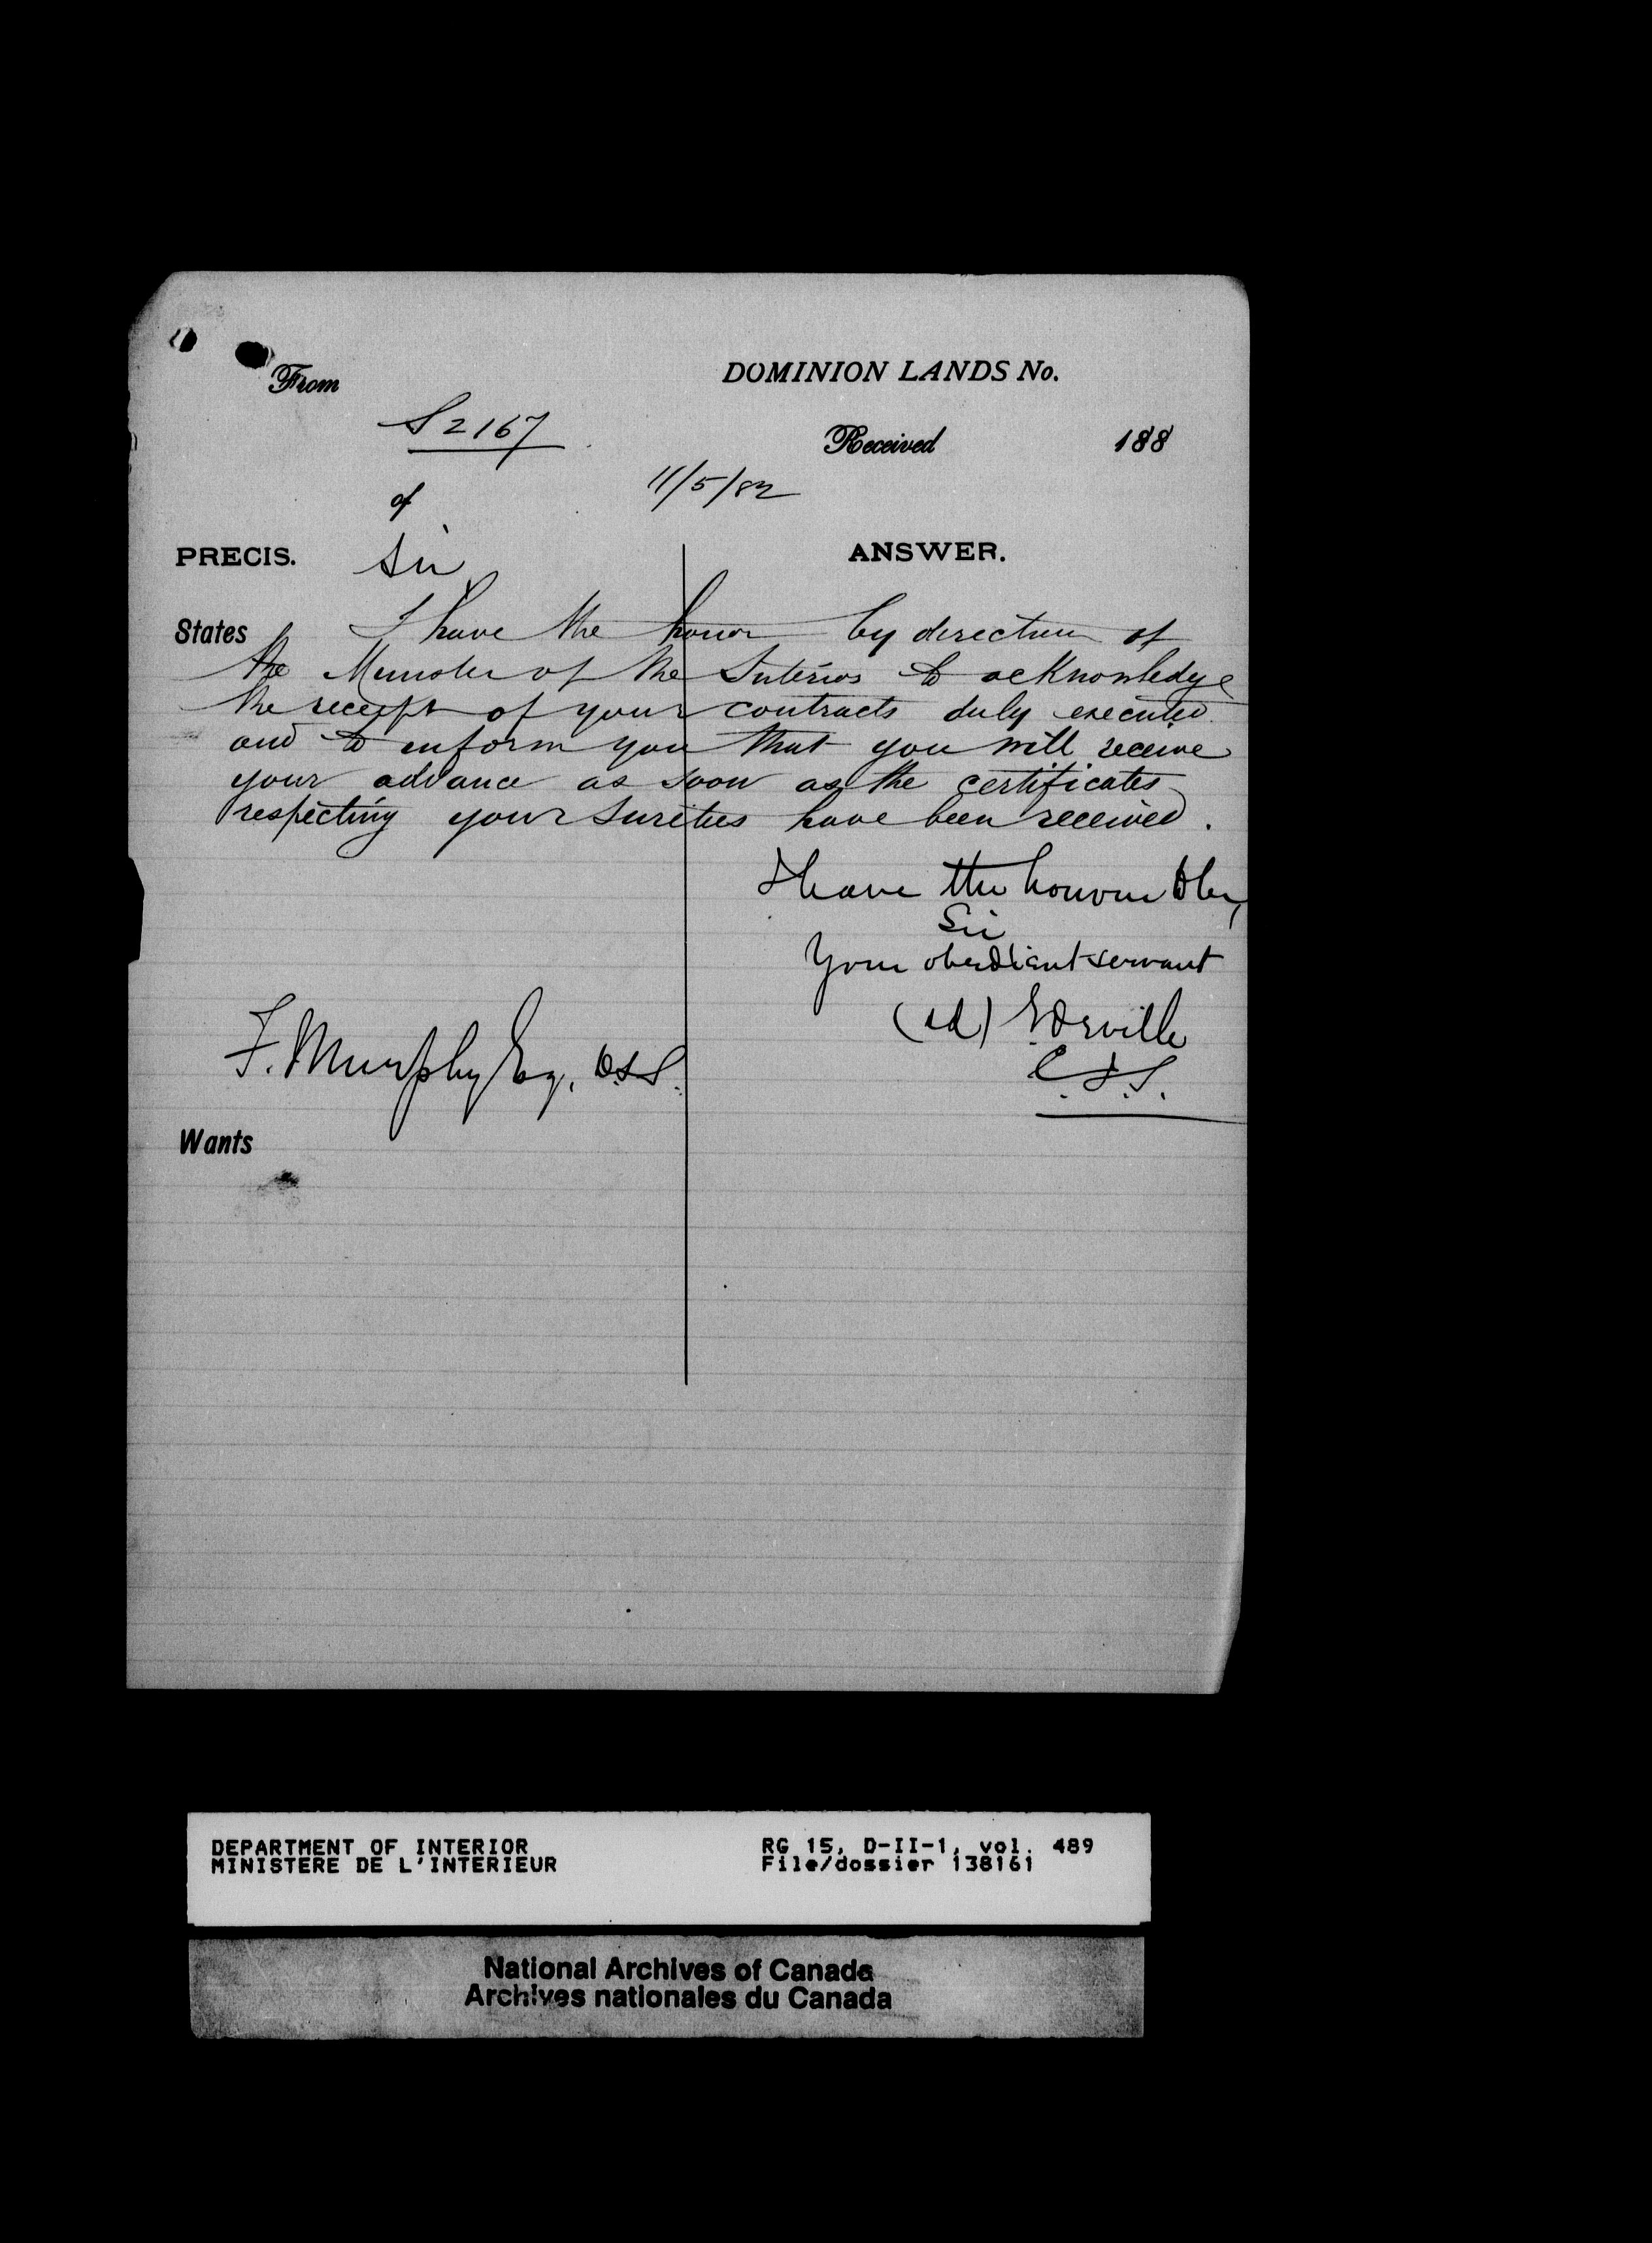 From
DOMINION LANDS No.
S 2167
Received 188
of
11/5/82
PRECIS.
Sir
ANSWER.
States
I have the honor by direction of
the Minister of the Interior to acknowledge
the receipt of your contracts duly executed
and to inform you that you will receive
your advance as soon as the certificates
respecting your sureties have been received.
I have the honour to be,
Sir
Your obedient servant
(sd) E Deville
C.I.S.
F. Murphy Esq. D.L.S.
Wants
DEPARTMENT OF INTERIOR
MINISTERE DE L'INTERIEUR
RG 15, D-II-1, vol. 489
File/dossier 138161
National Archives of Canada
Archives nationales du Canada